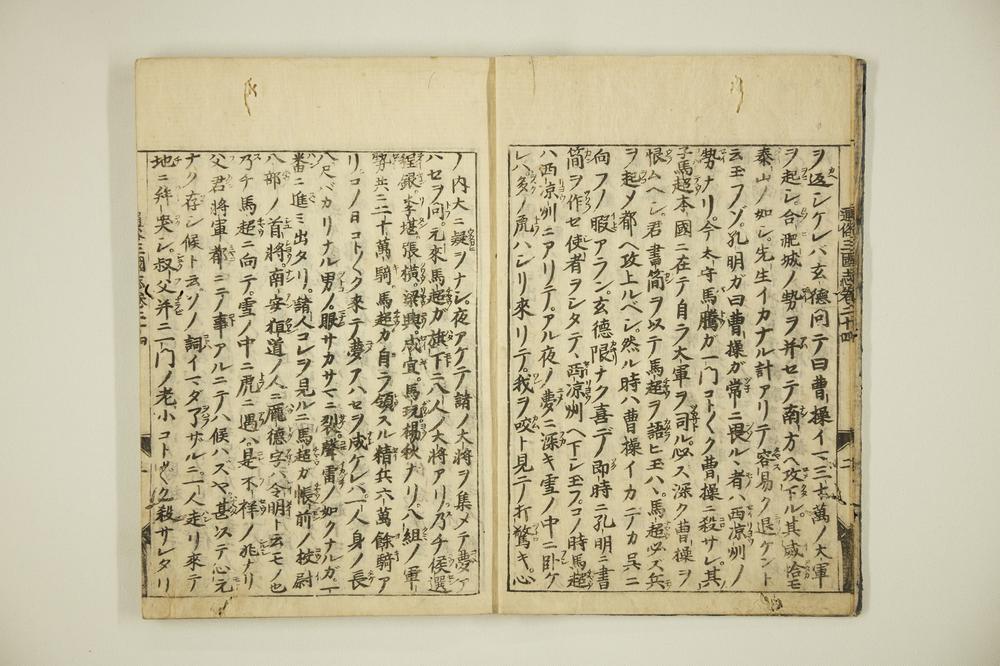 ヲ返シケレハ玄德問テ曰曹操イマ三十萬ノ大軍
ヲ起シ合淝城ノ勢ヲ并セテ南方ヘ攻下ル其威恰モ
泰山ノ如シ先生イカナル計アリテ容易ク退ケント
云玉フゾ孔明ガ曰曹操ガ常ニ畏ルヽ者ハ西凉州ノ
勢ナリ今太守馬騰ガ一門コトく曹操ニ殺サレ其
子馬超本國ニ在テ自ラ大軍ヲ司ル必ス深ク曹操ヲ
恨ムヘシ君書簡ヲ以テ馬超ヲ語ヒ玉ハヽ馬超必ス兵
ヲ起メ都ヘ攻上ルベシ然ル時ハ曹操イカニテカ呉ニ
向フノ暇アラン玄德限ナク喜デ即時ニ孔明ニ書
簡ヲ作セ使者ヲシタテ西凉州ヘ下シ玉フコノ時馬超
ハ西凉州ニアリテアル夜ノ夢ニ深キ雪ノ中ニ卧ケ
レハ多ノ虎ハシリ來リテ我ヲ咬ト見テ打驚キ心
通俗三國志卷二十四
ノ内大ニ疑ヲナシ夜アケテ諸ノ大將ヲ集メテ夢ケ
ハセヲ問元來馬超ガ旗下ニ八人ノ大將アリ乃チ侯選
程銀李堪張橫梁興成宜馬玩楊秋ナリ八組ノ軍
勢共ニ二十萬騎馬超ガ自ラ領スル精兵六萬餘騎ア
リコノ日コトく來テ夢アハセヲ成ケレハ一人身ノ長
八尺バカリナル男ノ眼サカサマニ裂聲雷ノ如クナルガ一
番ニ進ミ出タリ諸人コレヲ見ルニ馬超ガ帳前ノ校尉
八部ノ首將南安桓道ノ人ニ龐德字ハ令明ト云モノ也
乃チ馬超ニ向テ雪ノ中ニ虎ニ遇ハ是不祥ノ兆ナリ
父君將軍都ニテノ事アルニテハ候ハスヤ甚以テ心元
ナク存シ候ト云ソノ詞イマダ了サルニ一人走リ來テ
地ニ拜哭シ叔父并ニ一門ノ老小コトく殺サレタリ